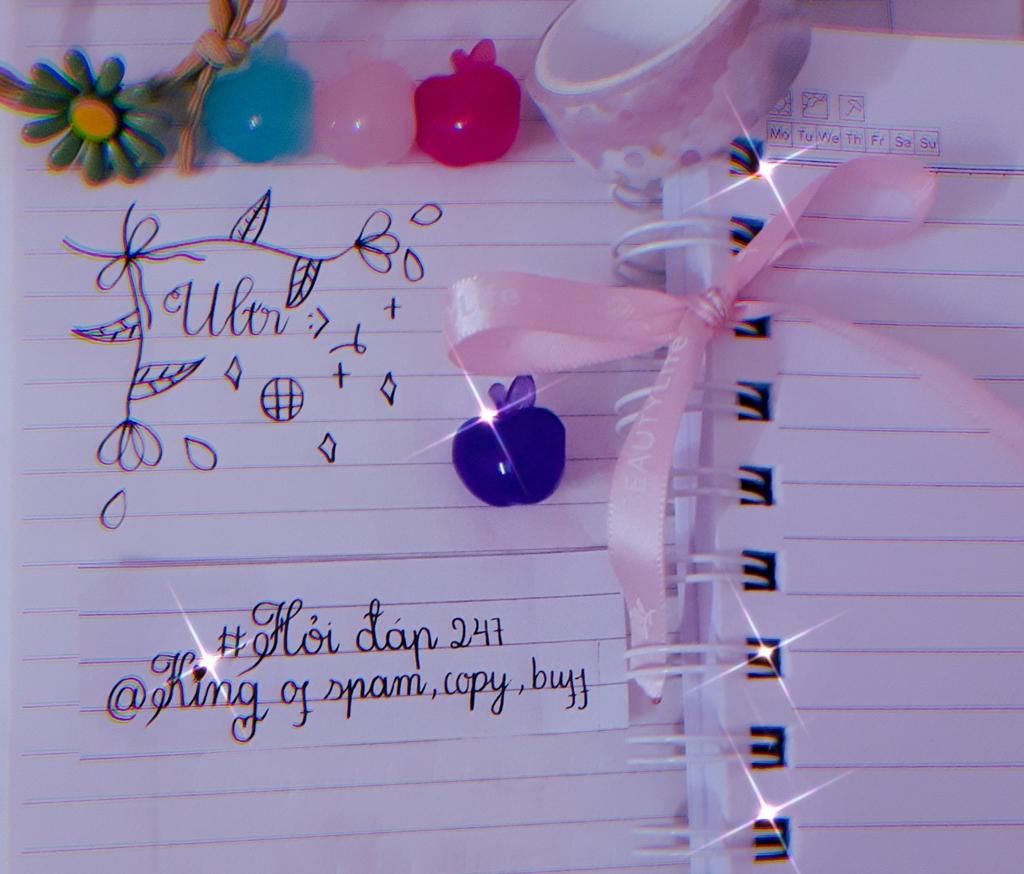 Mo Tu We Th Fr Sa Su
Ubtr :>
Life
BEAUTY LIFE
#Hỏi đáp 247
@King of spam, copy, buff